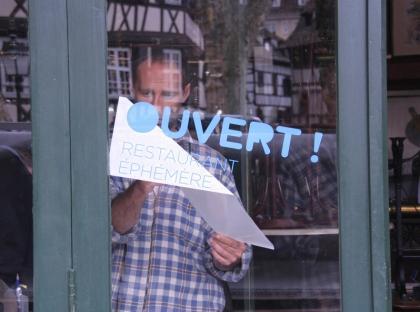 OUVERT !
RESTAURANT
ÉPHÉMÈRE